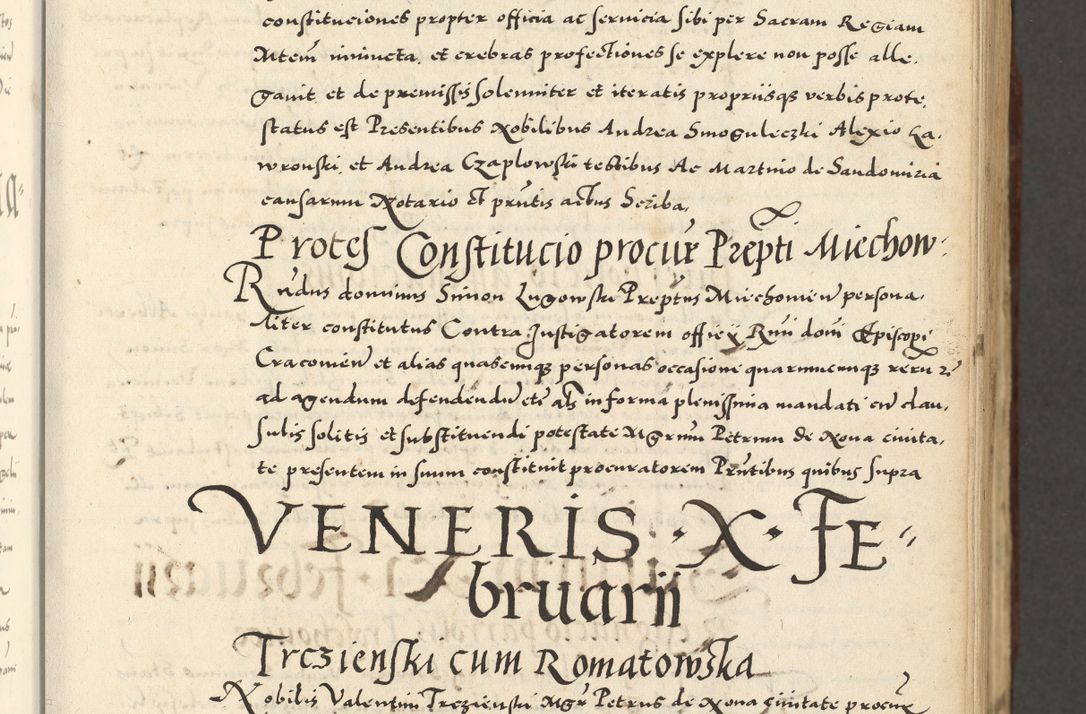 constituciones propter officia ac servicia sibi per Sacram Regiam
Mtem iniuncta, et crebras profectiones se explere non posse alle,
gavit, et de premissis solenniter et iteratis propriisqs verbis prote,
status est Presentibus Nobilibus Andrea Smoguleczki Alexio La,
wronski, et Andrea Czaplowski testibus Ac Martino de Sandomiria
causarum Notario et prntis actus Scriba,
Protes Constitucio procur Prepti Miechow:
Rndus dominus Simon Lugowski Preptus Miechowien persona,
liter constitutus Contra Instigatorem officii Rmi domi Episcopi
Cracovien et alias quascunqs personas occasione quarumcunqs reru
ad agendum defendendu etc als in forma plenissima mandati cu clau,
sulis solitis et substituendi potestate Mgrum Petrum de Nova civita,
te presentem in suum constituit procuratorem Prntibus quibus supra
VENERIS · X · FE"
bruarii
Trczienski cum Romatowska
Nobilis Valentini Trczienski Mgr Petrus de Nova civitate procur